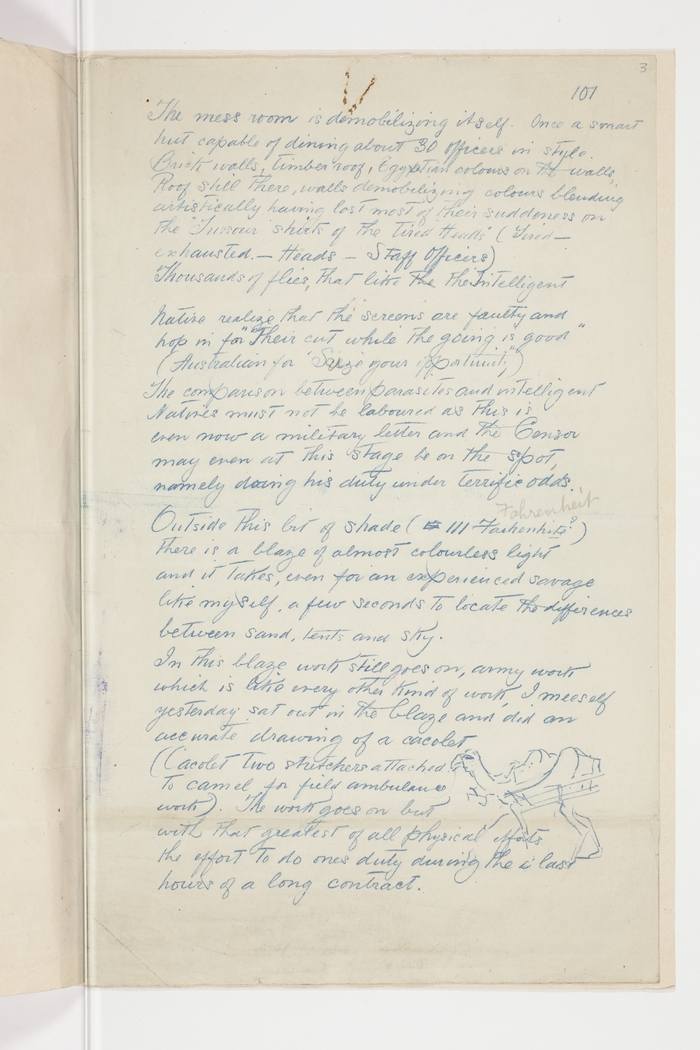 3
101
The mess room is demobilizing itself. Once a smart
hut capable of dining about 30 officers in style.
Brick walls, timber roof, Egyptian colours on the walls,
Roof still there, walls demobilizing colours blending
artistically having lost most of their suddeness on
the "Tussour shirts of the Tired Heads" (Tired —
exhausted — Heads — Staff Officers)
Thousands of flies, that like the the Intelligent
Native realize that the screens are faulty and
hop in for "Their cut while the going is good"
(Australian for "Seize your opportunity")
The comparison between parasites and intelligent
Natives must not be laboured as this is
even now a military letter and the Censor
may even at this stage be on the spot,
namely doing his duty under terrific odds.
Fahrenheit
Outside this bit of shade ( 111 Farhenhite°)
there is a blaze of almost colourless light
and it takes, even for an experienced savage
like myself, a few seconds to locate the differences
between sand, tents and sky.
In this blaze work still goes on, army work
which is like every other kind of work, I meeself
yesterday sat out in the blaze and did an
accurate drawing of a cacolet
(Cacolet Two stretchers attached
to camel for field ambulance
work). The work goes on but
with that greatest of all physical efforts
the effort to do ones duty during the last
hours of a long contract.